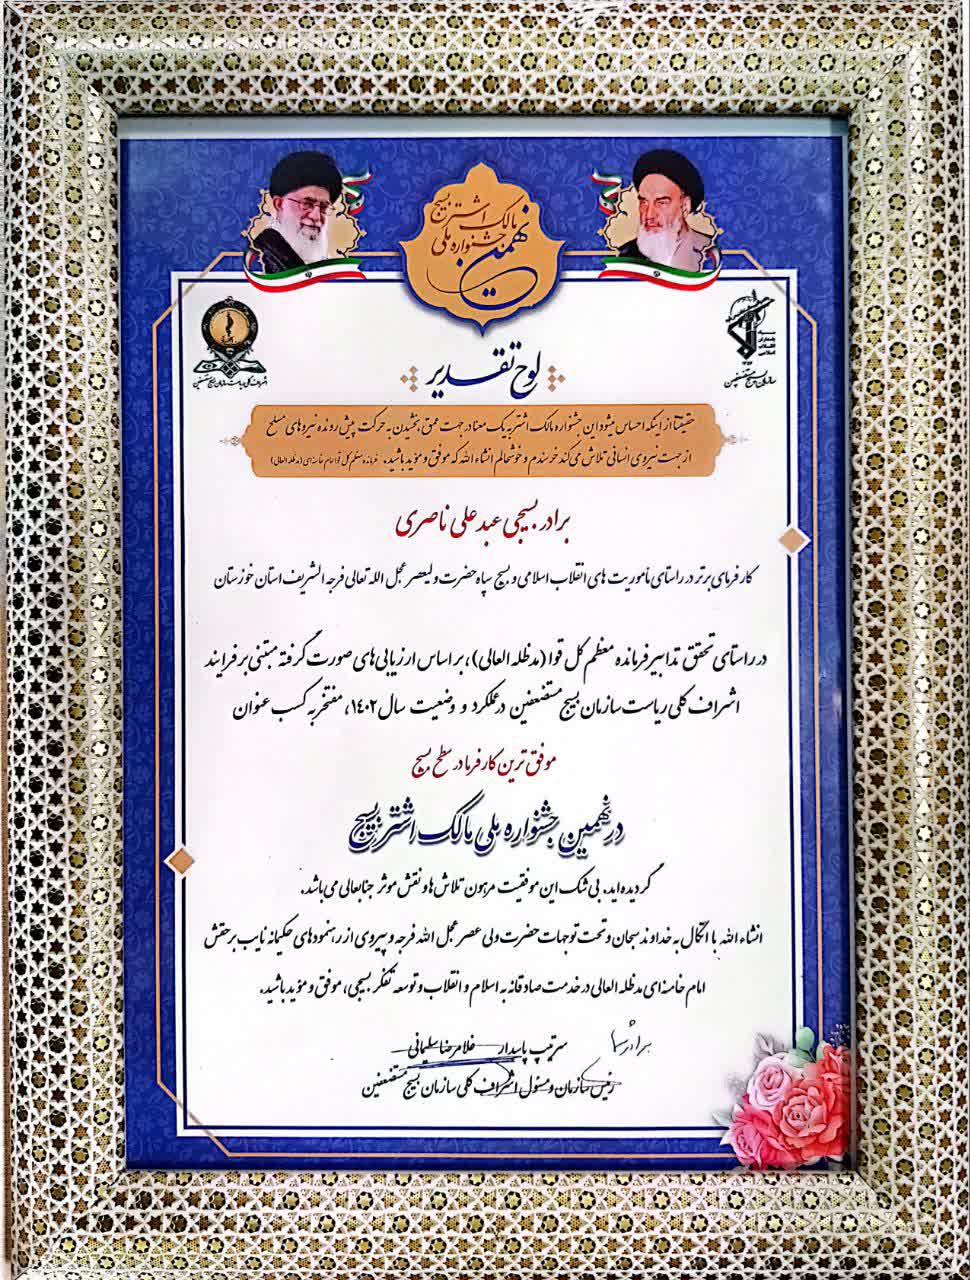 نهمین جشنواره ملی مالک اشتر بسیج
سپاه پاسداران انقلاب اسلامی
سازمان بسیج مستضعفین
اشراف کلی ریاست سازمان بسیج مستضعفین
لوح تقدیر
حقیقتاً از اینکه احساس میشود این جشنواره مالک اشتر به یک معنا در جهت عمق بخشیدن به حرکت پیش رونده نیروهای مسلح
از جهت نیروی انسانی تلاش می‌کند خرسندم و خوشحالم انشاء الله که موفق و مؤید باشید. فرمانده معظم کل قوا امام خامنه‌ای (مدظله العالی)
برادر بسیجی عبدعلی ناصری
کارفرمای برتر در راستای مأموریت های انقلاب اسلامی و بسیج سپاه حضرت ولیعصر عجل الله تعالی فرجه الشریف استان خوزستان
در راستای تحقق تدابیر فرمانده معظم کل قوا (مدظله العالی)، بر اساس ارزیابی های صورت گرفته مبتنی بر فرایند
اشراف کلی ریاست سازمان بسیج مستضعفین در عملکرد و وضعیت سال ۱۴۰۲، مفتخر به کسب عنوان
موفق ترین کارفرما در سطح بسیج
در نهمین جشنواره ملی مالک اشتر بسیج
گردیده‌اید. بی شک این موفقیت مرهون تلاش ها و نقش موثر جنابعالی می باشد.
انشاء الله با اتکال به خداوند سبحان و تحت توجهات حضرت ولی عصر عجل الله فرجه و پیروی از رهنمودهای حکیمانه نایب برحقش
امام خامنه ای مدظله العالی در خدمت صادقانه به اسلام و انقلاب و توسعه تفکر بسیجی، موفق و مؤید باشید.
برادر شما
سرتیپ پاسدار غلامرضا سلیمانی
رئیس سازمان و مسئول اشراف کلی سازمان بسیج مستضعفین